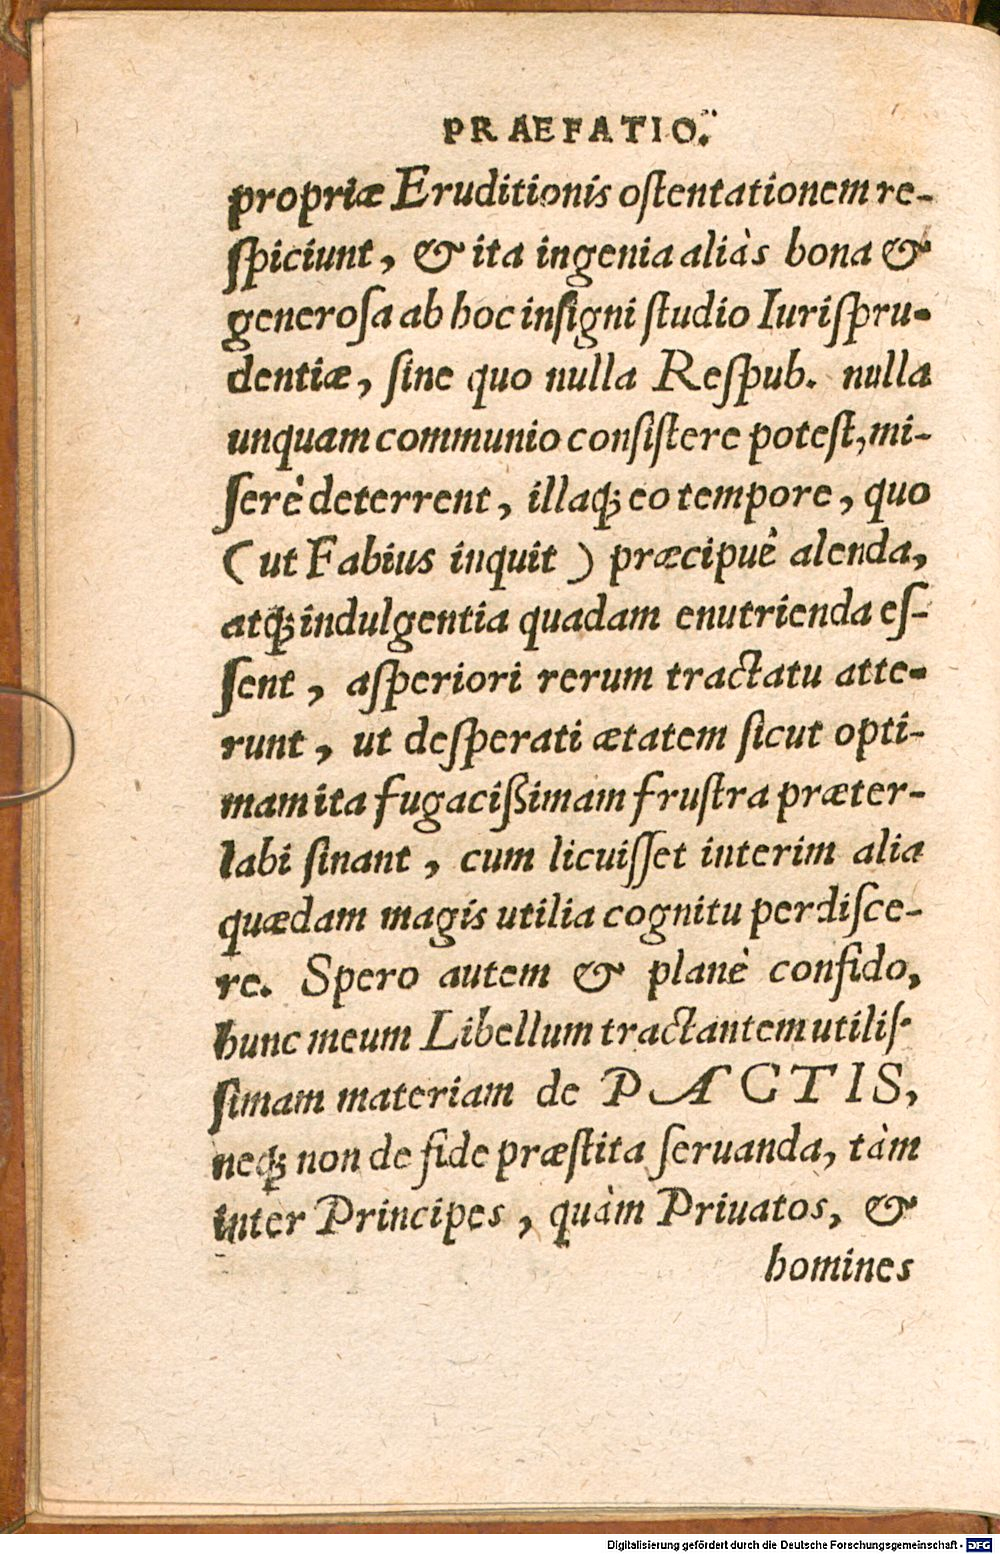 PRAEFATIO.
propriæ Eruditionis oſtentationem re-
ſpiciunt, & ita ingenia aliàs bona &
generoſa ab hoc inſigni ſtudio Iuriſpru-
dentiæ, ſine quo nulla Reſpub. nulla
unquam communio conſiſtere poteſt, mi-
ſerè deterrent, illaq; eo tempore, quo
(ut Fabius inquit) præcipuè alenda,
atq; indulgentia quadam enutrienda eſ-
ſent, aſperiori rerum tractatu atte-
runt, ut deſperati ætatem ſicut opti-
mam ita fugacißimam fruſtra præter-
labi ſinant, cum licuiſſet interim alia
quædam magis utilia cognitu perdiſce-
re. Spero autem & planè confido,
hunc meum Libellum tractantem utiliſ-
ſimam materiam de PACTIS,
neq; non de fide præſtita ſeruanda, tàm
inter Principes, quàm Priuatos, &
homines
Digitalisierung gefördert durch die Deutsche Forschungsgemeinschaft - DFG